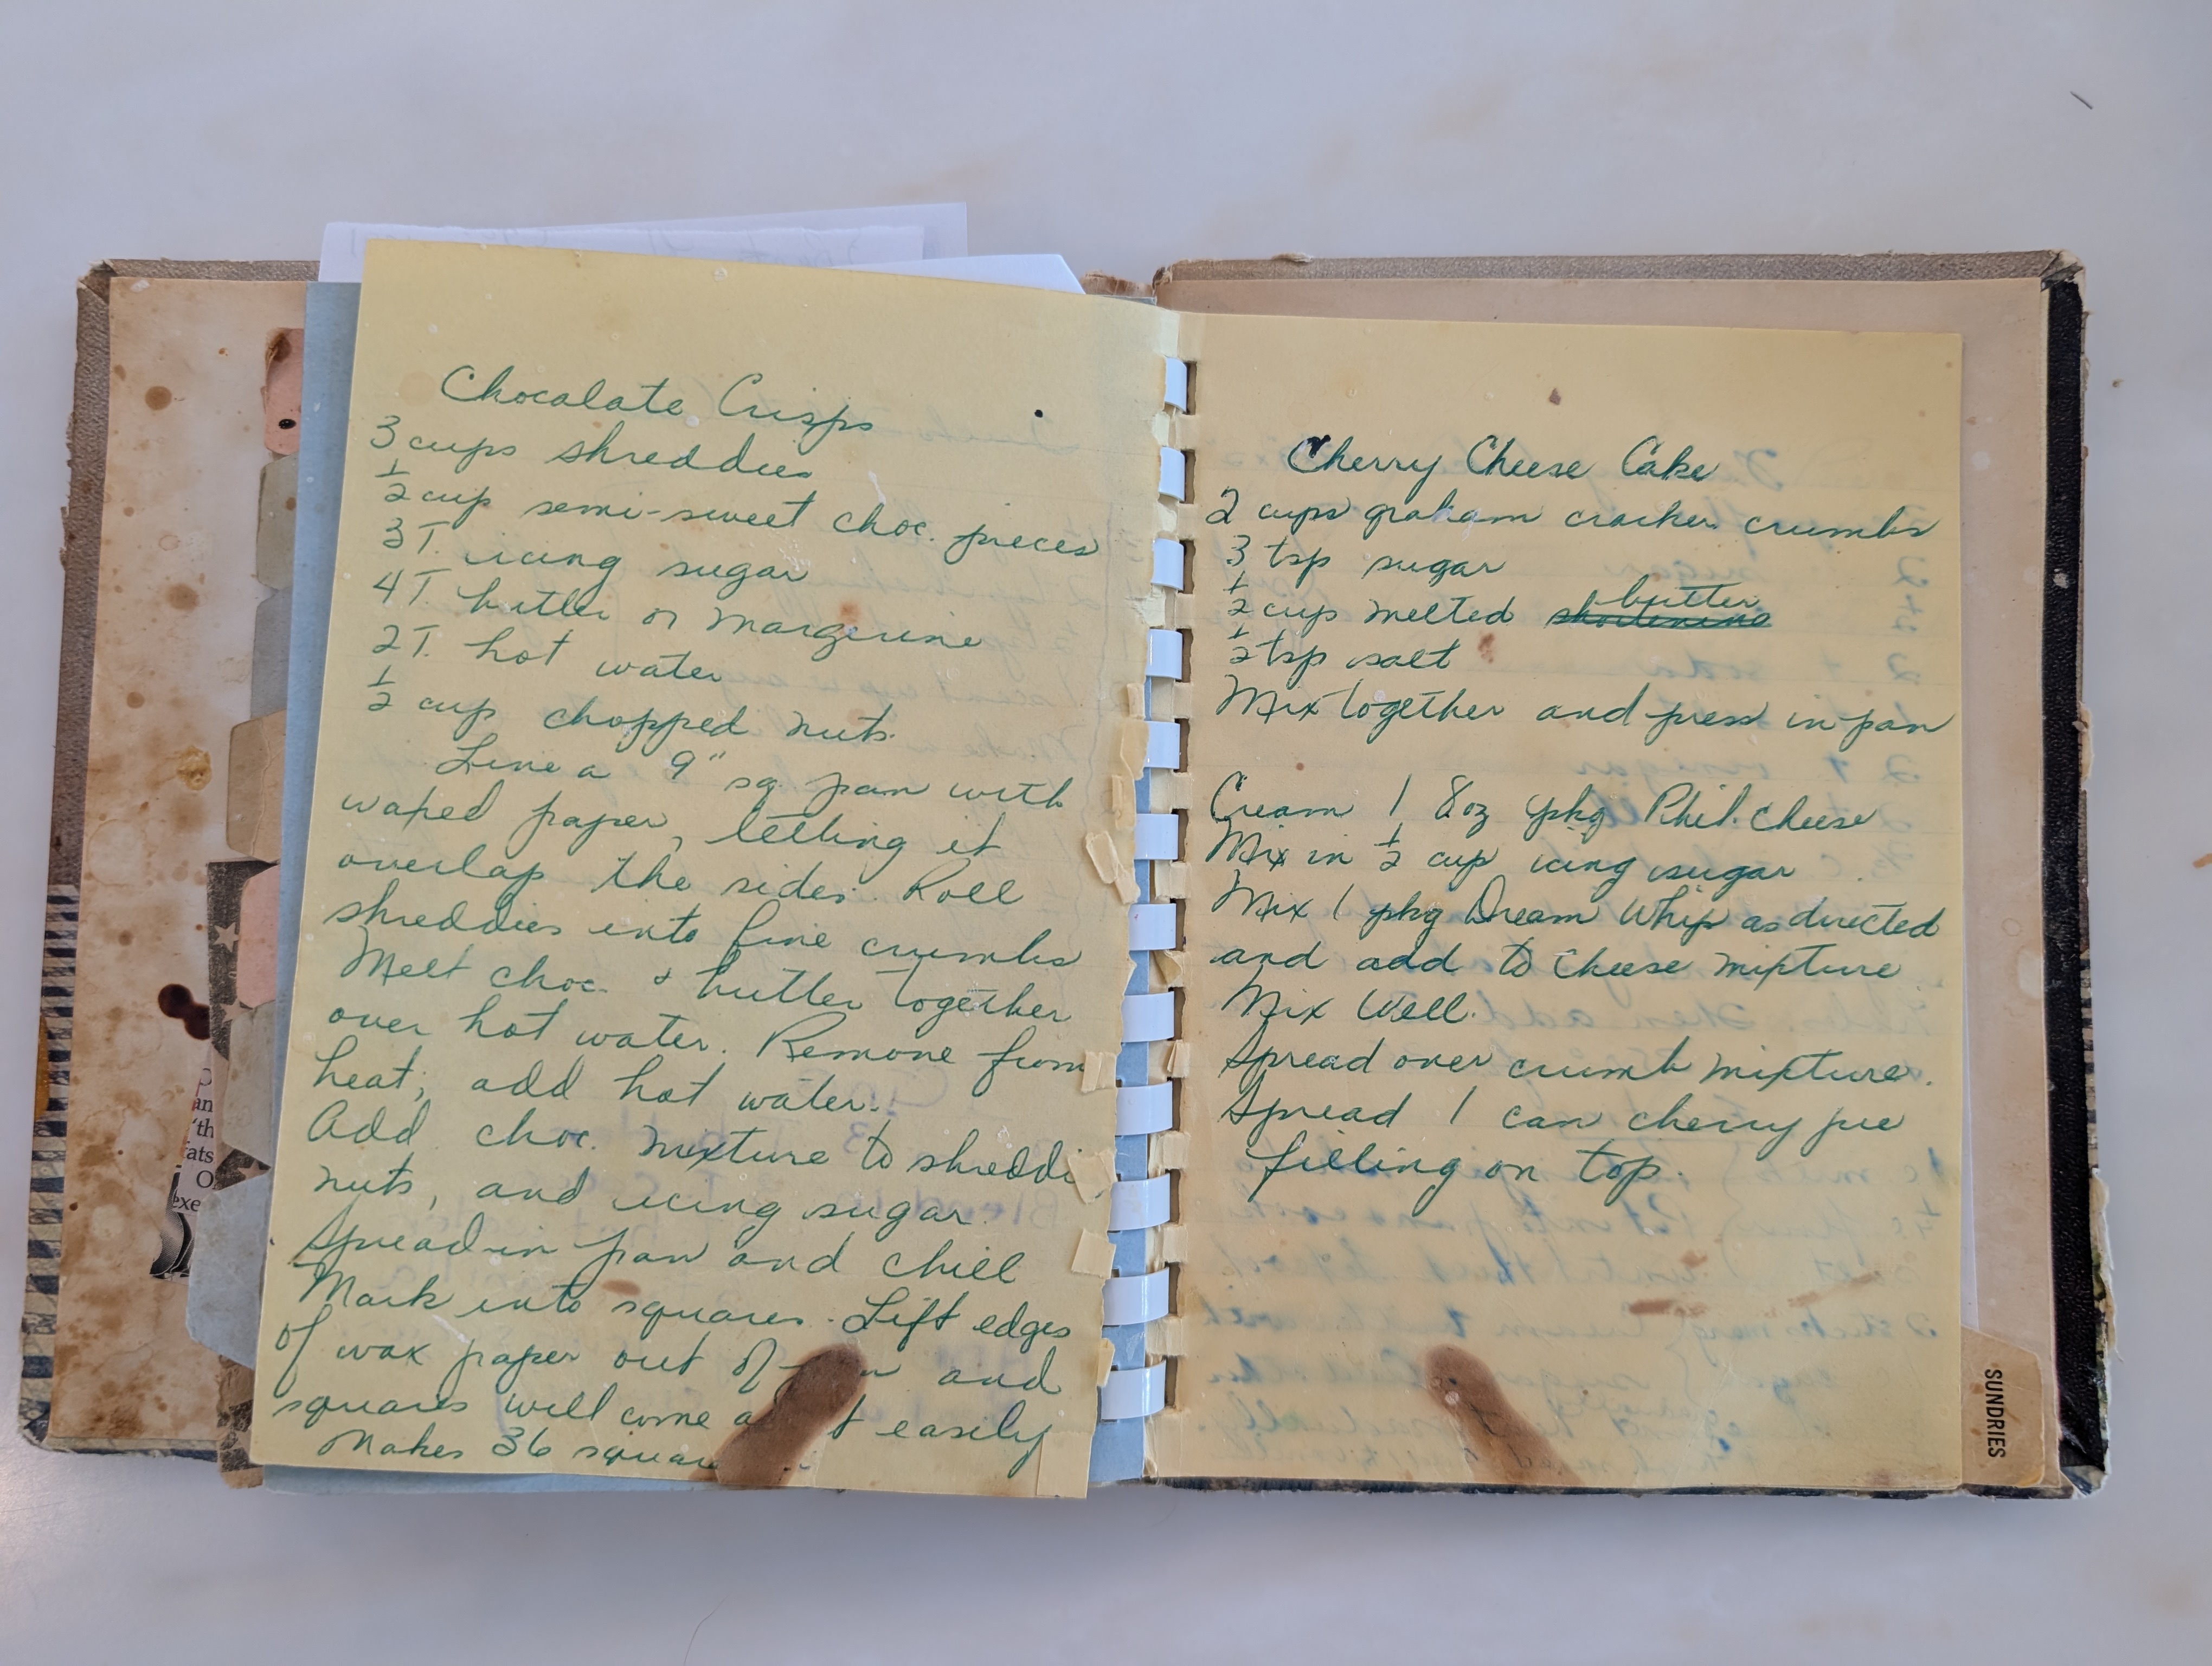 Chocalate Crisps
3 cups shreddies
1/2 cup semi-sweet choc. pieces
3 T. icing sugar
4 T. butter or margerine
2 T. hot water
1/2 cup chopped nuts.
Line a 9" sq pan with
waxed paper, letting it
overlap the sides. Roll
shreddies into fine crumbs
Melt choc. & butter together
over hot water. Remove from
heat, add hot water.
Add choc. mixture to shreddi
nuts, and icing sugar.
Spread in pan and chill
Mark into squares. Lift edges
of wax paper out of and
squares will come easily
Makes 36
Cherry Cheese Cake
2 cups graham cracker crumbs
3 tsp sugar
butter
1/2 cup melted shortening
1/2 tsp salt
Mix together and press in pan
Cream 1 8oz pkg Phil. Cheese
Mix in 1/2 cup icing sugar
Mix 1 pkg Dream Whip as directed
and add to Cheese mixture
Mix Well.
Spread over crumb mixture.
Spread 1 can cherry pie
filling on top.
SUNDRIES